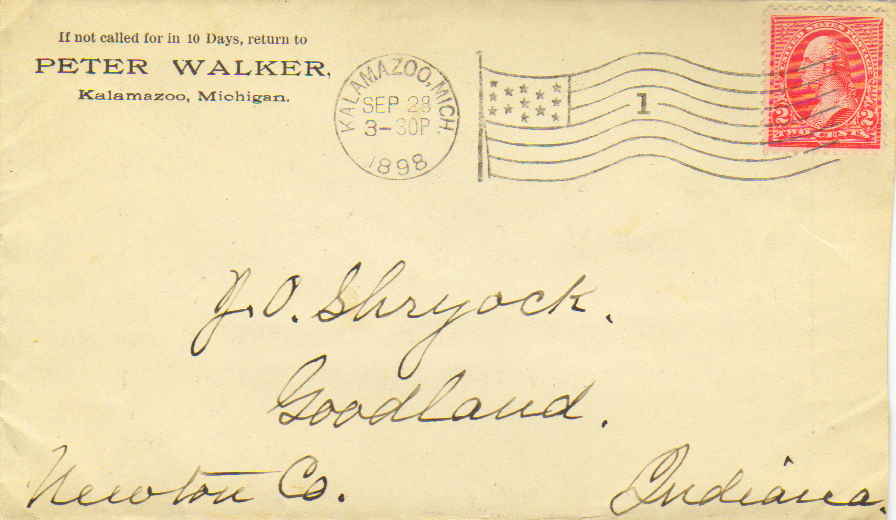 If not called for in 10 Days, return to
PETER WALKER,
Kalamazoo, Michigan.
KALAMAZOO, MICH.
SEP 28
3-30P
1898
1
UNITED STATES POSTAGE
2 2
TWO CENTS
J. O. Shryock.
Goodland.
Newton Co. Indiana.